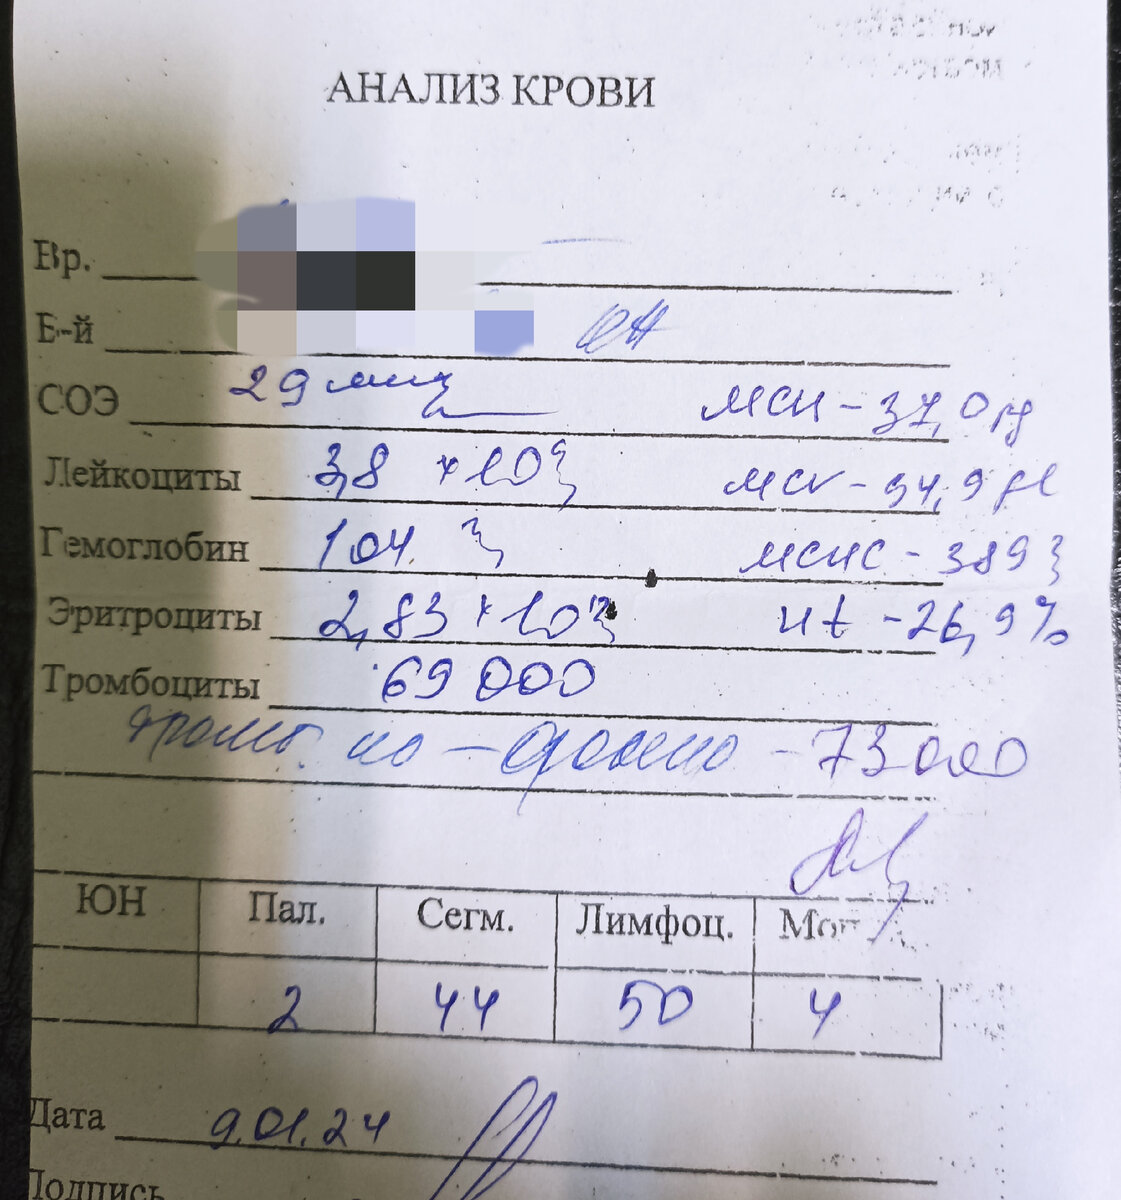 АНАЛИЗ КРОВИ
Вр.
Б-й
СОЭ 29 мм/ч МСН - 37,0 pg
Лейкоциты 3,8 × 10⁹ МСV - 94,9 fl
Гемоглобин 104 МСНС - 389
Эритроциты 2,83 × 10¹² Ht - 26,9%
Тромбоциты 69 000
тромб. по - Фонио - 73000
ЮН Пал. Сегм. Лимфоц. Мон
2 44 50 4
Дата 9.01.24
Подпись